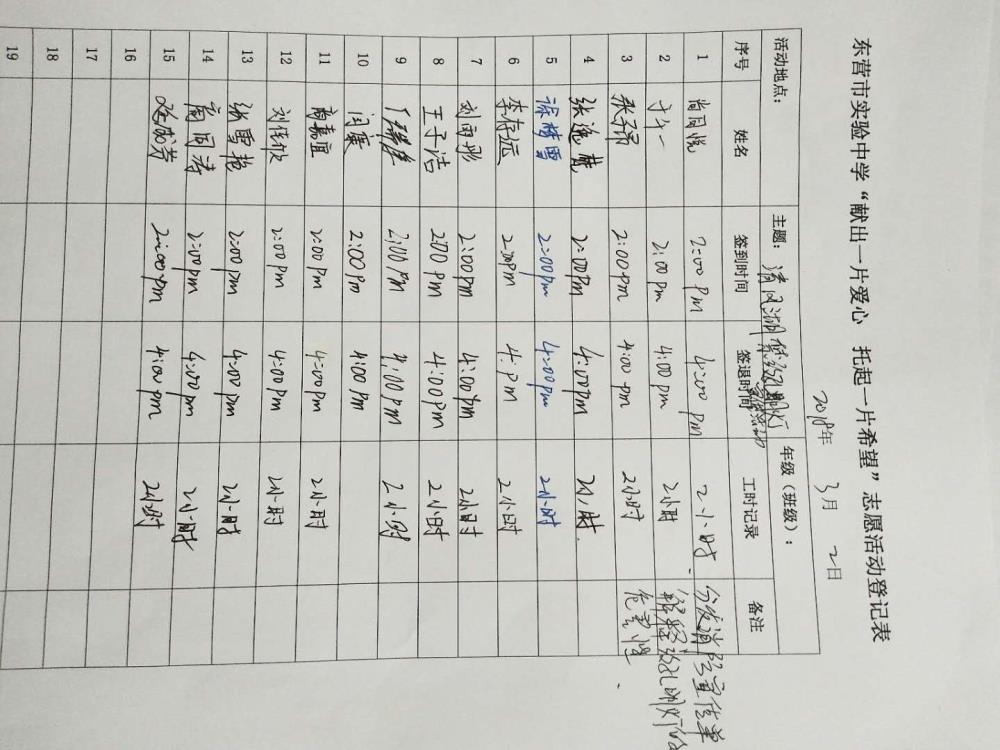 东营市实验中学“献出一片爱心 托起一片希望”志愿活动登记表
2018年 3月 2日
活动地点： 主题：清风湖禁放孔明灯 年级（班级）：
序号 姓名 签到时间 签退时间 工时记录 备注
1 尚同悦 2:00 pm 4:00 pm 2小时 分发消防宣传单
2 2:00 pm 4:00 pm 2小时 解释放孔明灯的
3 2:00 pm 4:00 pm 2小时 危害性
4 张逸 2:00pm 4:00pm 2小时
5 徐梦雪 2:00pm 4:00pm 2小时
6 李存远 2:00pm 4: pm 2小时
7 刘雨彤 2:00pm 4:00pm 2小时
8 王子浩 2:00 pm 4:00pm 2小时
9 2:00 pm 4:00pm 2小时
10 闫康 2:00 pm 4:00 pm
11 高嘉 2:00 pm 4:00 pm 2小时
12 2:00 pm 4:00 pm 2小时
13 张雪艳 2:00 pm 4:00 pm 2小时
14 周同涛 2:00 pm 4:00 pm 2小时
15 2:00 pm 4:00 pm 2小时
16
17
18
19